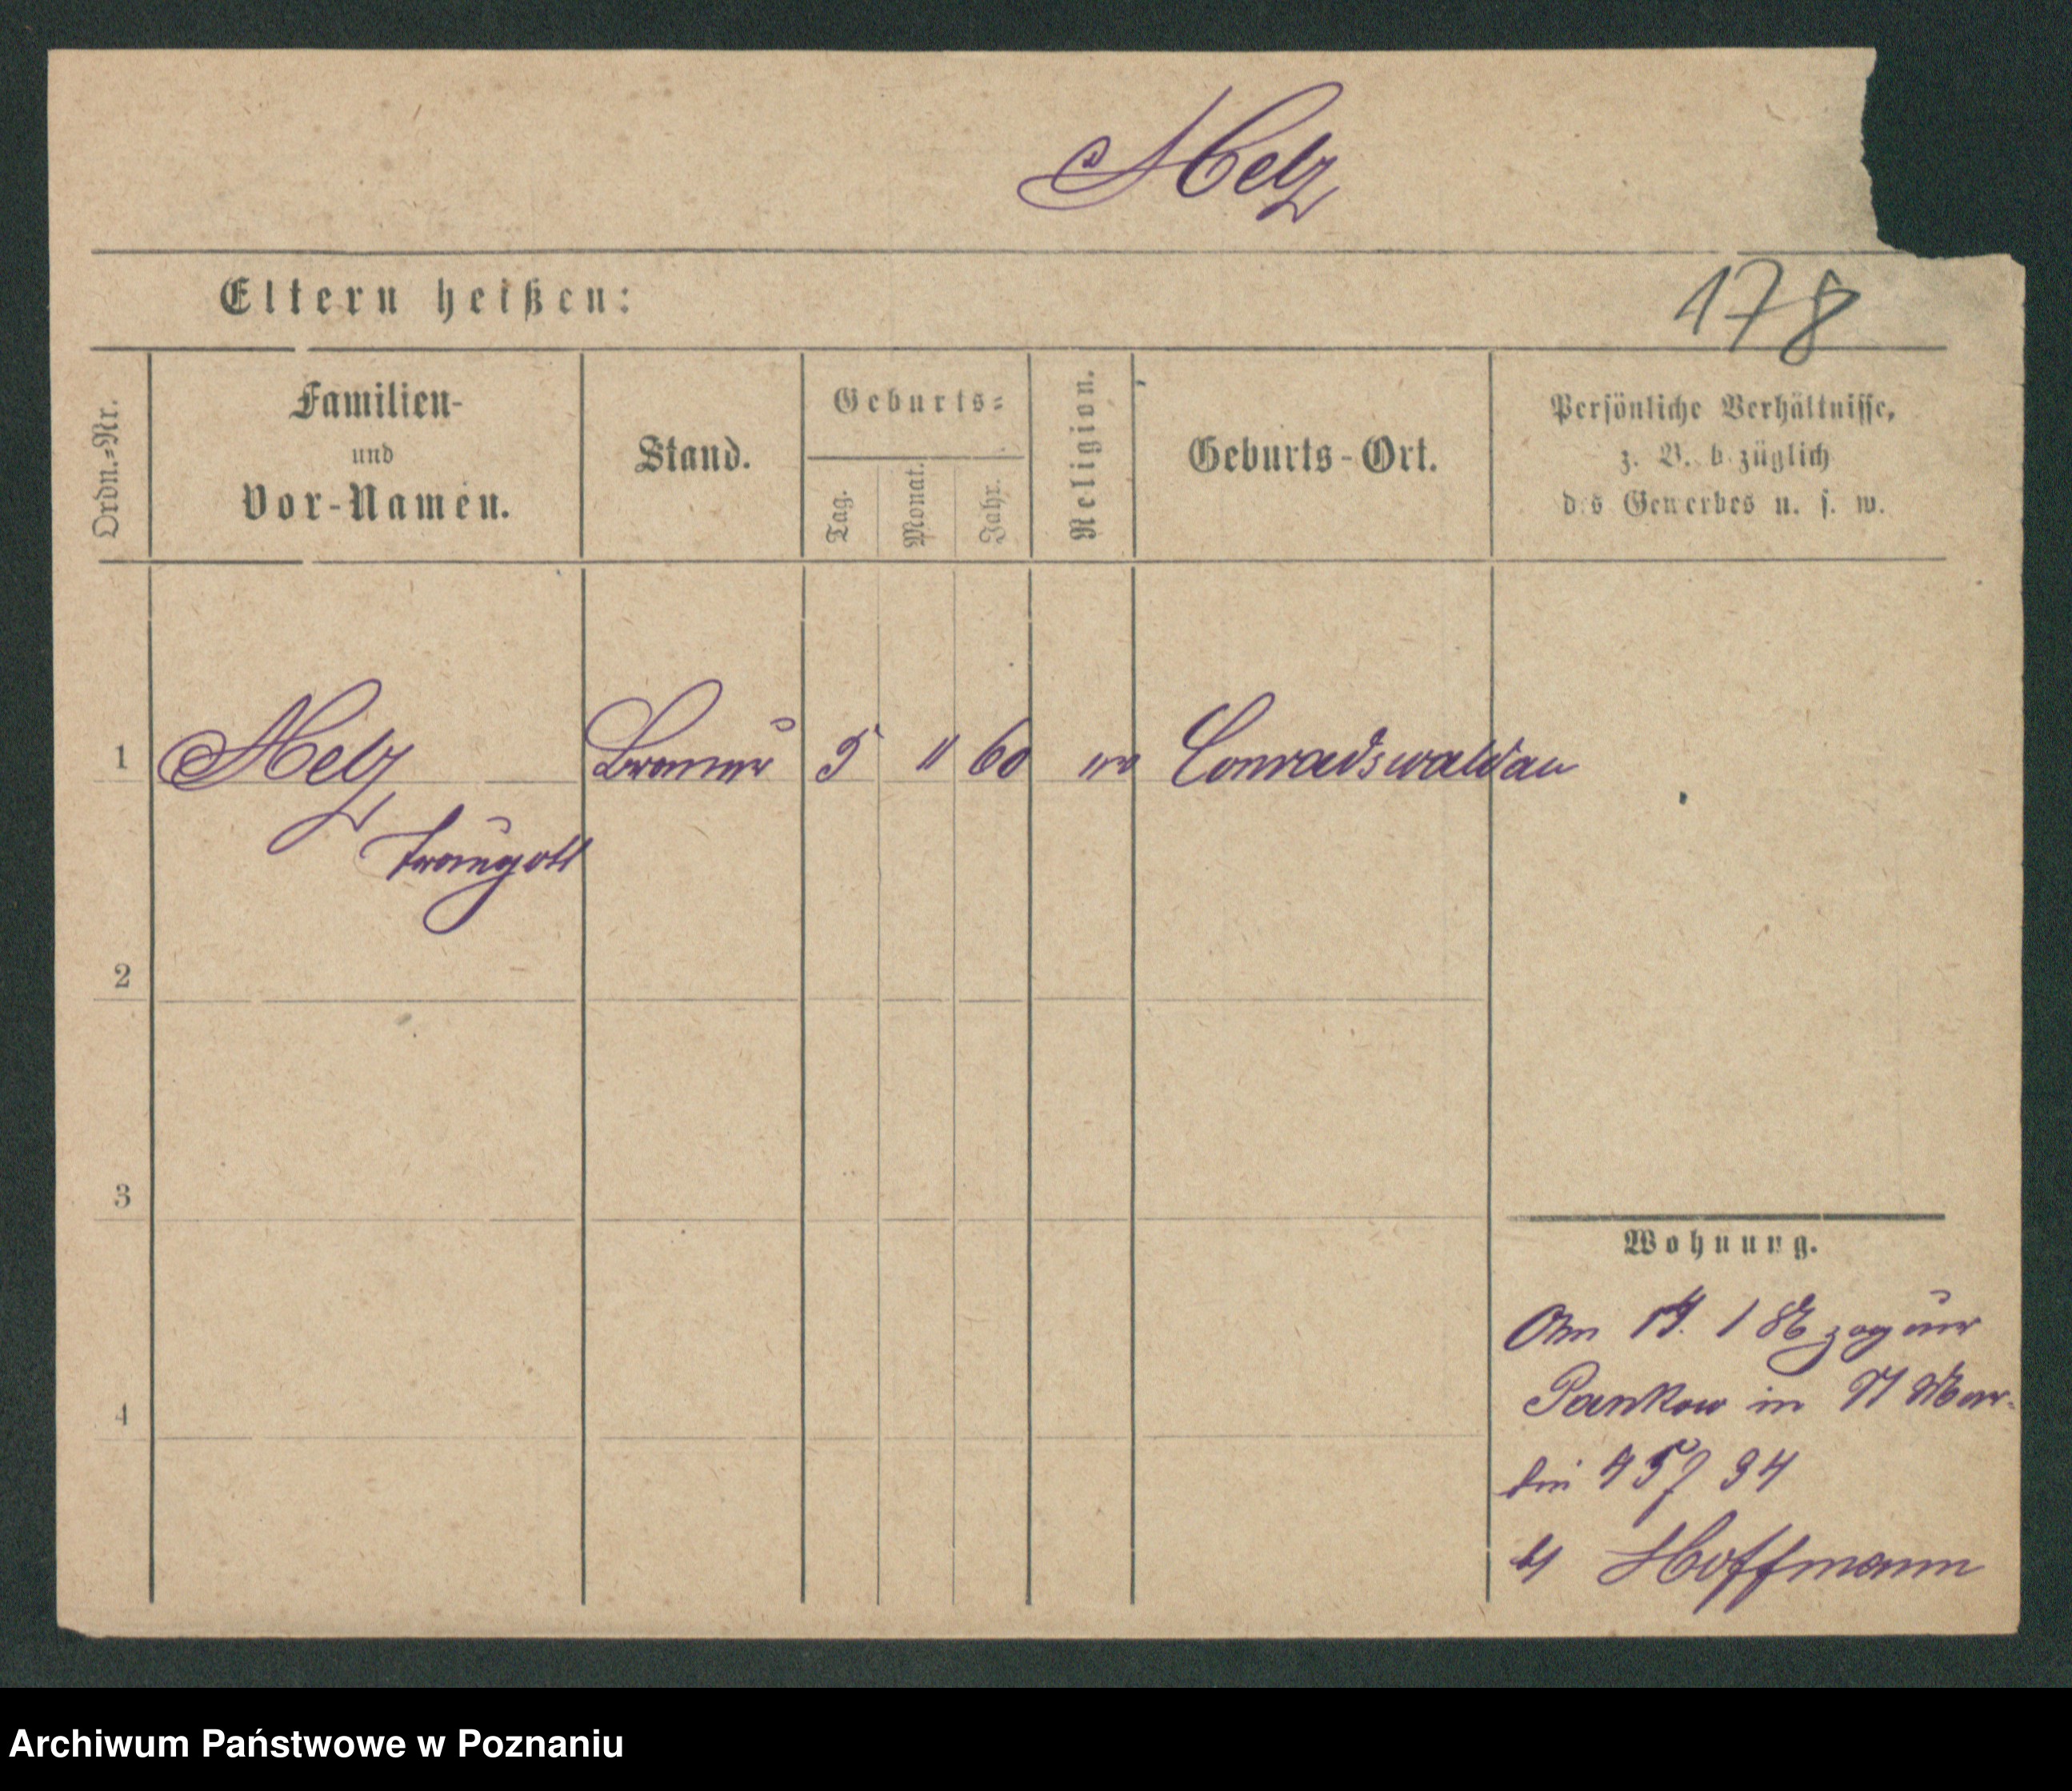 Melz
Eltern heißen:
178
Ordn.-Nr.
Familien-
und
Vor-Namen.
Stand.
Geburts-
Tag.
Monat.
Jahr.
Religion.
Geburts-Ort.
Persönliche Verhältnisse,
z. B. b züglich
d s Gewerbes u. s. w.
1 Melz Brauer 5 11 60 Conradswaldau
Traugott
2
3
4
Wohnung.
Am 14. 1 86 zog aus
Pankow in St Mar-
tin 457 34
b/ Hoffmann
Archiwum Państwowe w Poznaniu